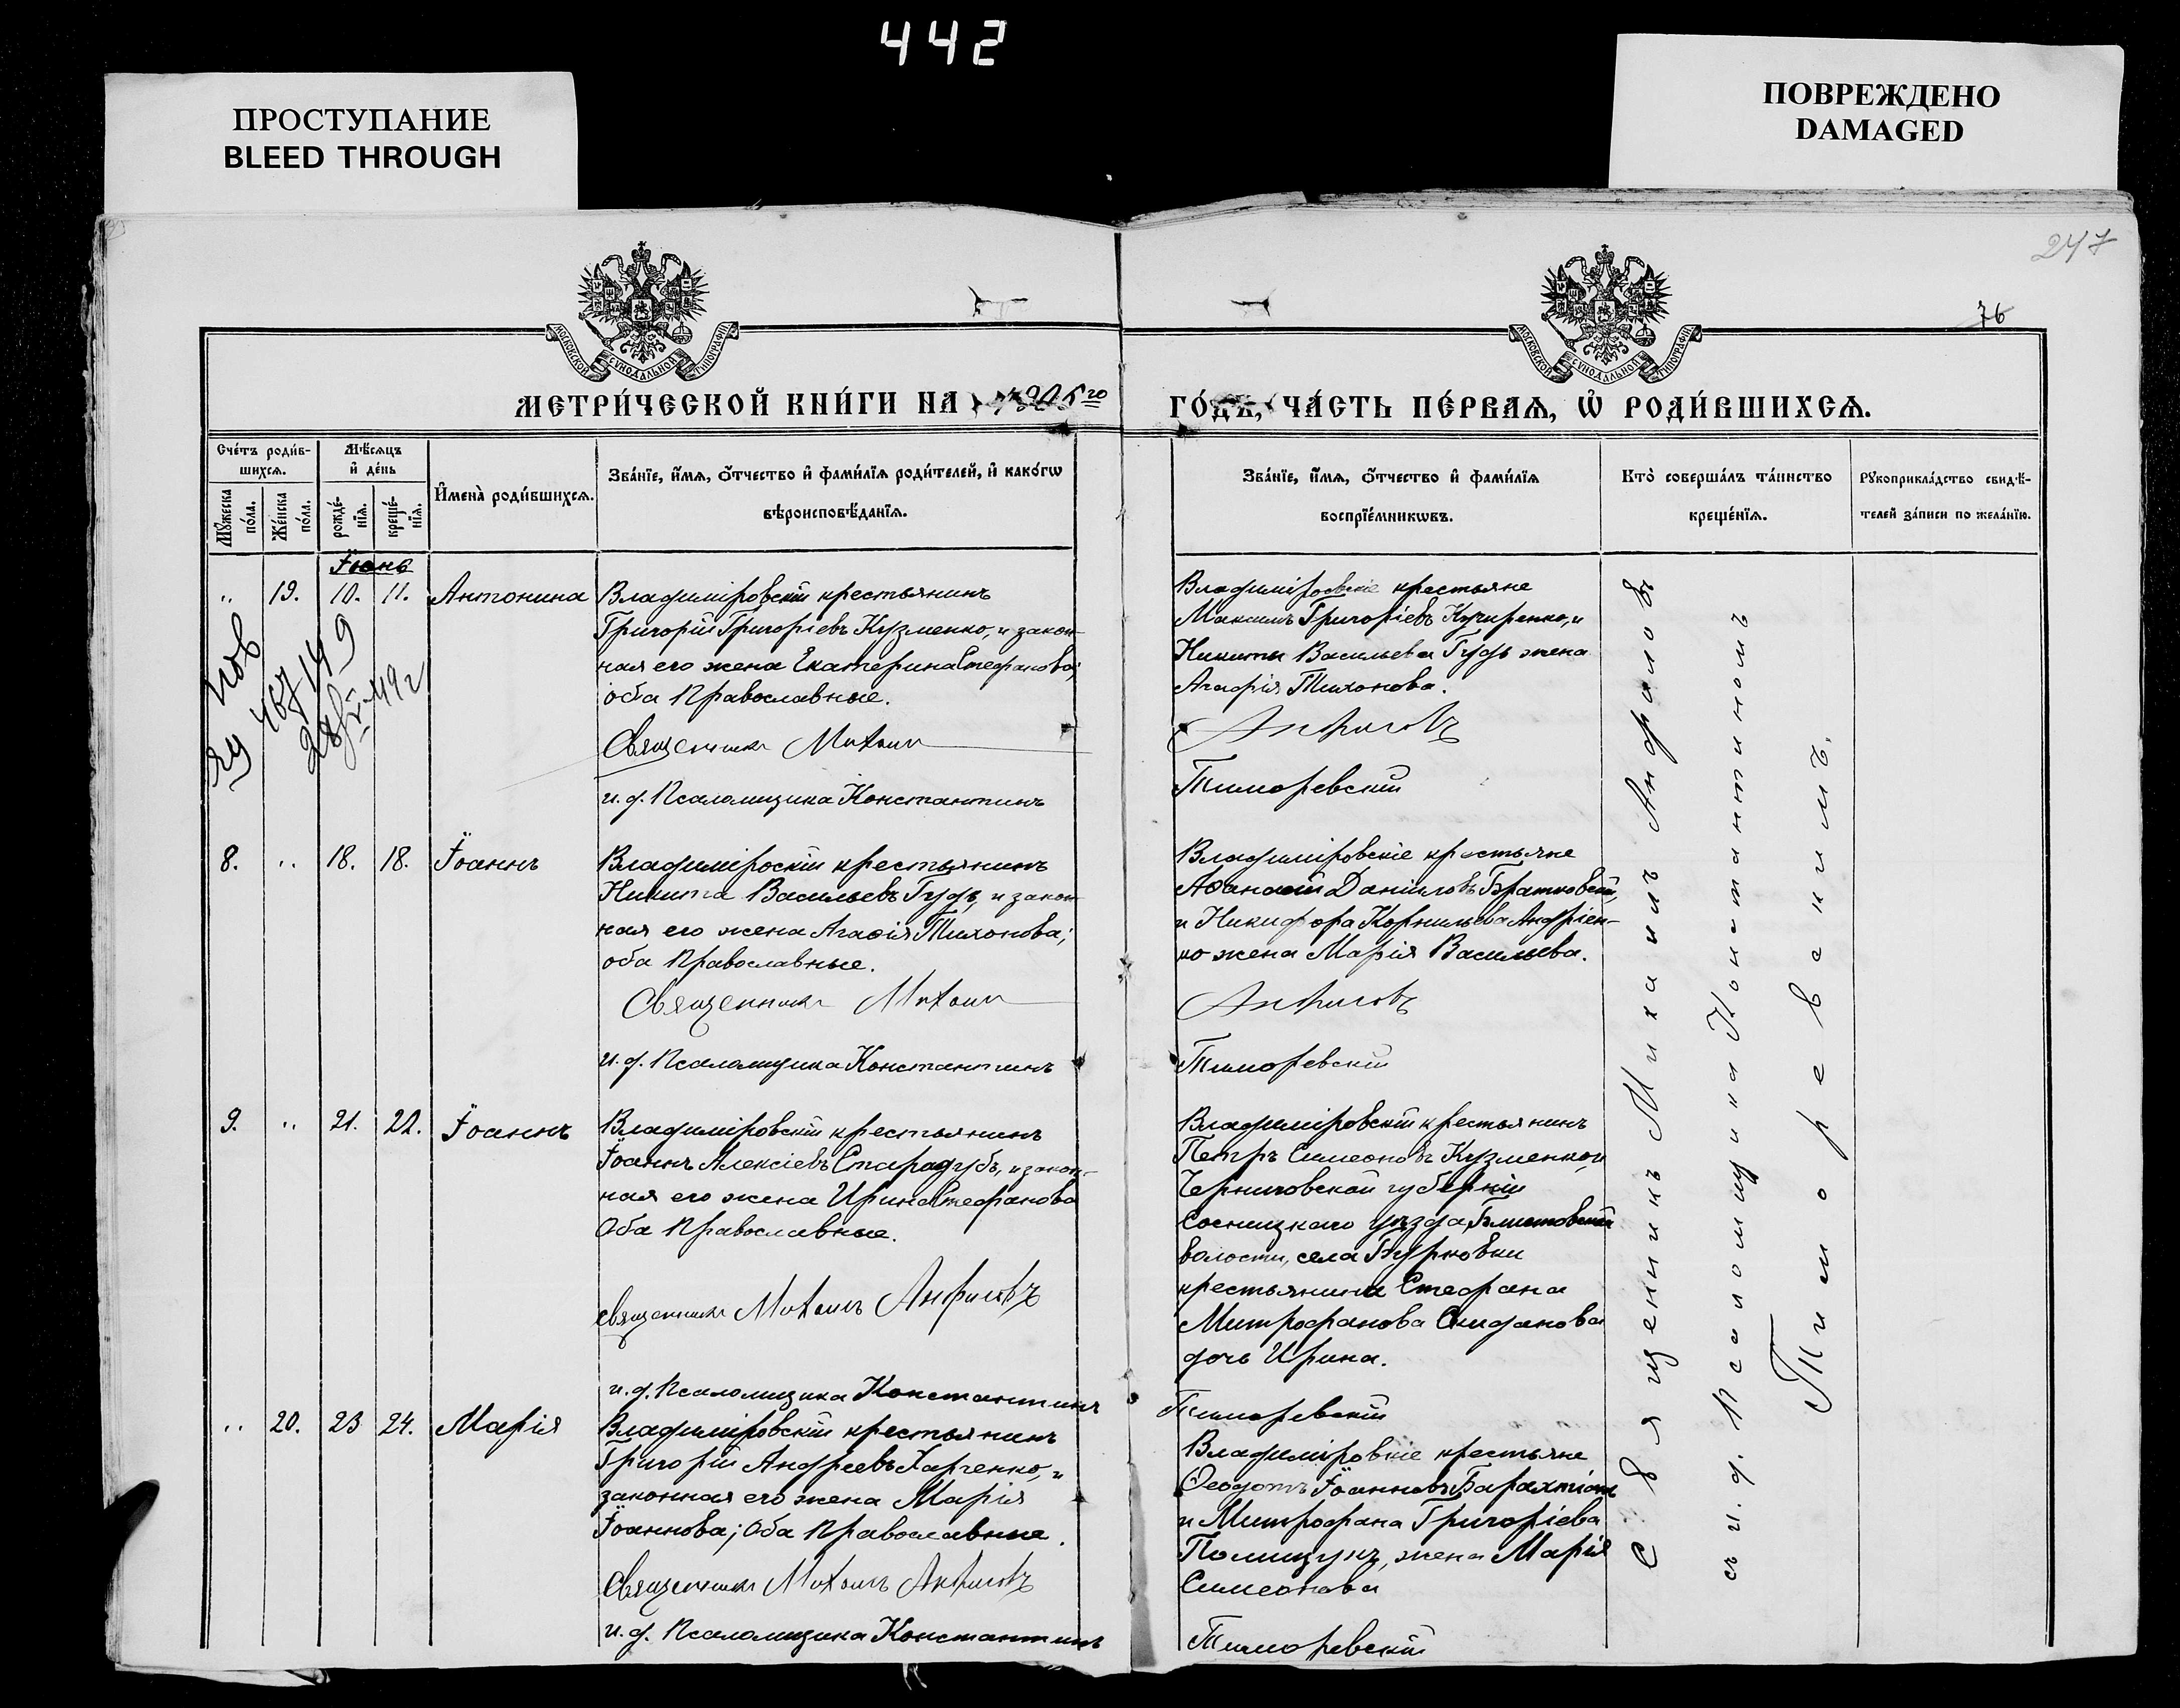 442
ПРОСТУПАНИЕ
BLEED THROUGH
ПОВРЕЖДЕНО
DAMAGED
247
76
МОСКОВСКОЙ СУНОДАЛЬНОЙ ТИПОГРАФІИ
МОСКОВСКОЙ СУНОДАЛЬНОЙ ТИПОГРАФІИ
МЕТРИ́ЧЕСКОЙ КНИ́ГИ НА 1905 го
ГО́ДЪ, ЧА́СТЬ ПЕ́РВАЯ, Ѡ҆ РОДИ́ВШИХСѦ.
Сче́тъ роди́в-
шихсѧ.
Мѣ́сѧцъ
и҆ де́нь
Мꙋ́жеска
по́ла.
Же́нска
по́ла.
рожде́-
нїѧ.
креще́-
нїѧ.
И҆мена̀ роди́вшихсѧ.
Зва́нїе, и҆́мѧ, ѻ҆́тчество и҆ фами́лїѧ роди́телей, и҆ како́гѡ
вѣроисповѣ́данїѧ.
Зва́нїе, и҆́мѧ, ѻ҆́тчество и҆ фами́лїѧ
воспрїе́мникѡвъ.
Кто̀ соверша́лъ та́инство
креще́нїѧ.
Рꙋкоприкла́дство свидѣ́-
телей за́писи по жела́нїю.
Іюнь
" 19. 10. 11. Антонина
Владиміровскій крестьянинъ
Григорій Григоріевъ Кузменко, и закон-
ная его жена Екатерина Стефанова;
оба Православные.
Священникъ Михаилъ
и. д. Псаломщика Константинъ
Владиміровскіе крестьяне
Максимъ Григоріевъ Кучеренко, и
Никиты Васильева Гудь жена
Агафія Тихонова.
Анфиловъ
Тиморевскій
8. " 18. 18. Іоаннъ
Владиміроскій крестьянинъ
Никита Васильевъ Гудь, и закон-
ная его жена Агафія Тихонова;
оба Православные.
Священникъ Михаилъ
и. д. Псаломщика Константинъ
Владиміровскіе крестьяне
Аѳанасій Даніиловъ Братковскій,
и Никифора Корнильева Андріен-
ко жена Марія Васильева.
Анфиловъ
Тиморевскій
9. " 21. 22. Іоаннъ
Владиміровскій крестьянинъ
Іоаннъ Алексіевъ Стародубъ, и закон-
ная его жена Ирина Стефанова
Оба Православные.
священникъ Михаилъ Анфиловъ
и. д. Псаломщика Константинъ
Владиміровскій крестьянинъ
Петръ Симеоновъ Кузменко, и
Черниговской губерніи
Сосницкаго уѣзда,
волости, села Бурковки
крестьянина Стефана
Митрофанова
дочь Ирина.
Тиморевскій
" 20. 23 24. Марія
Владиміровскій крестьянинъ
Григорій Андреевъ Харченко, и
законная его жена Марія
Іоаннова; Оба Православные.
Священникъ Михаилъ Анфиловъ
и. д. Псаломщика Константинъ
Владиміровскіе крестьяне
Ѳеодотъ Іоанновъ
и Митрофана Григоріева
Полищукъ, жена Марія
Симеонова
Тиморевскій
Священникъ Михаилъ Анфиловъ
съ и. д. Псаломщика Константиномъ
Тиморевскимъ.